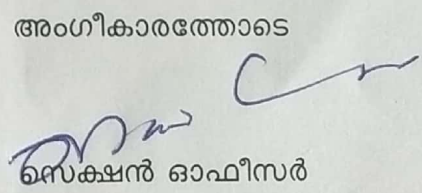 അംഗീകാരത്തോടെ
സെക്ഷൻ ഓഫീസർ